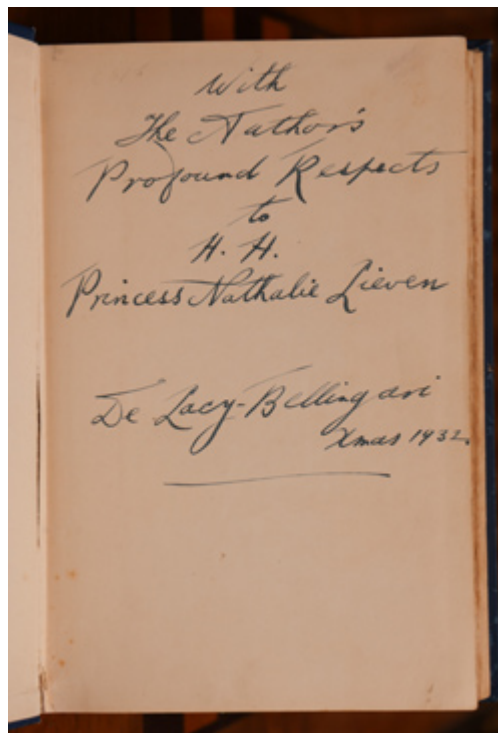 With
The Author's
Profound Respects
to
H. H.
Princess Nathalie Lieven
De Lacy-Bellingari
Xmas 1932.